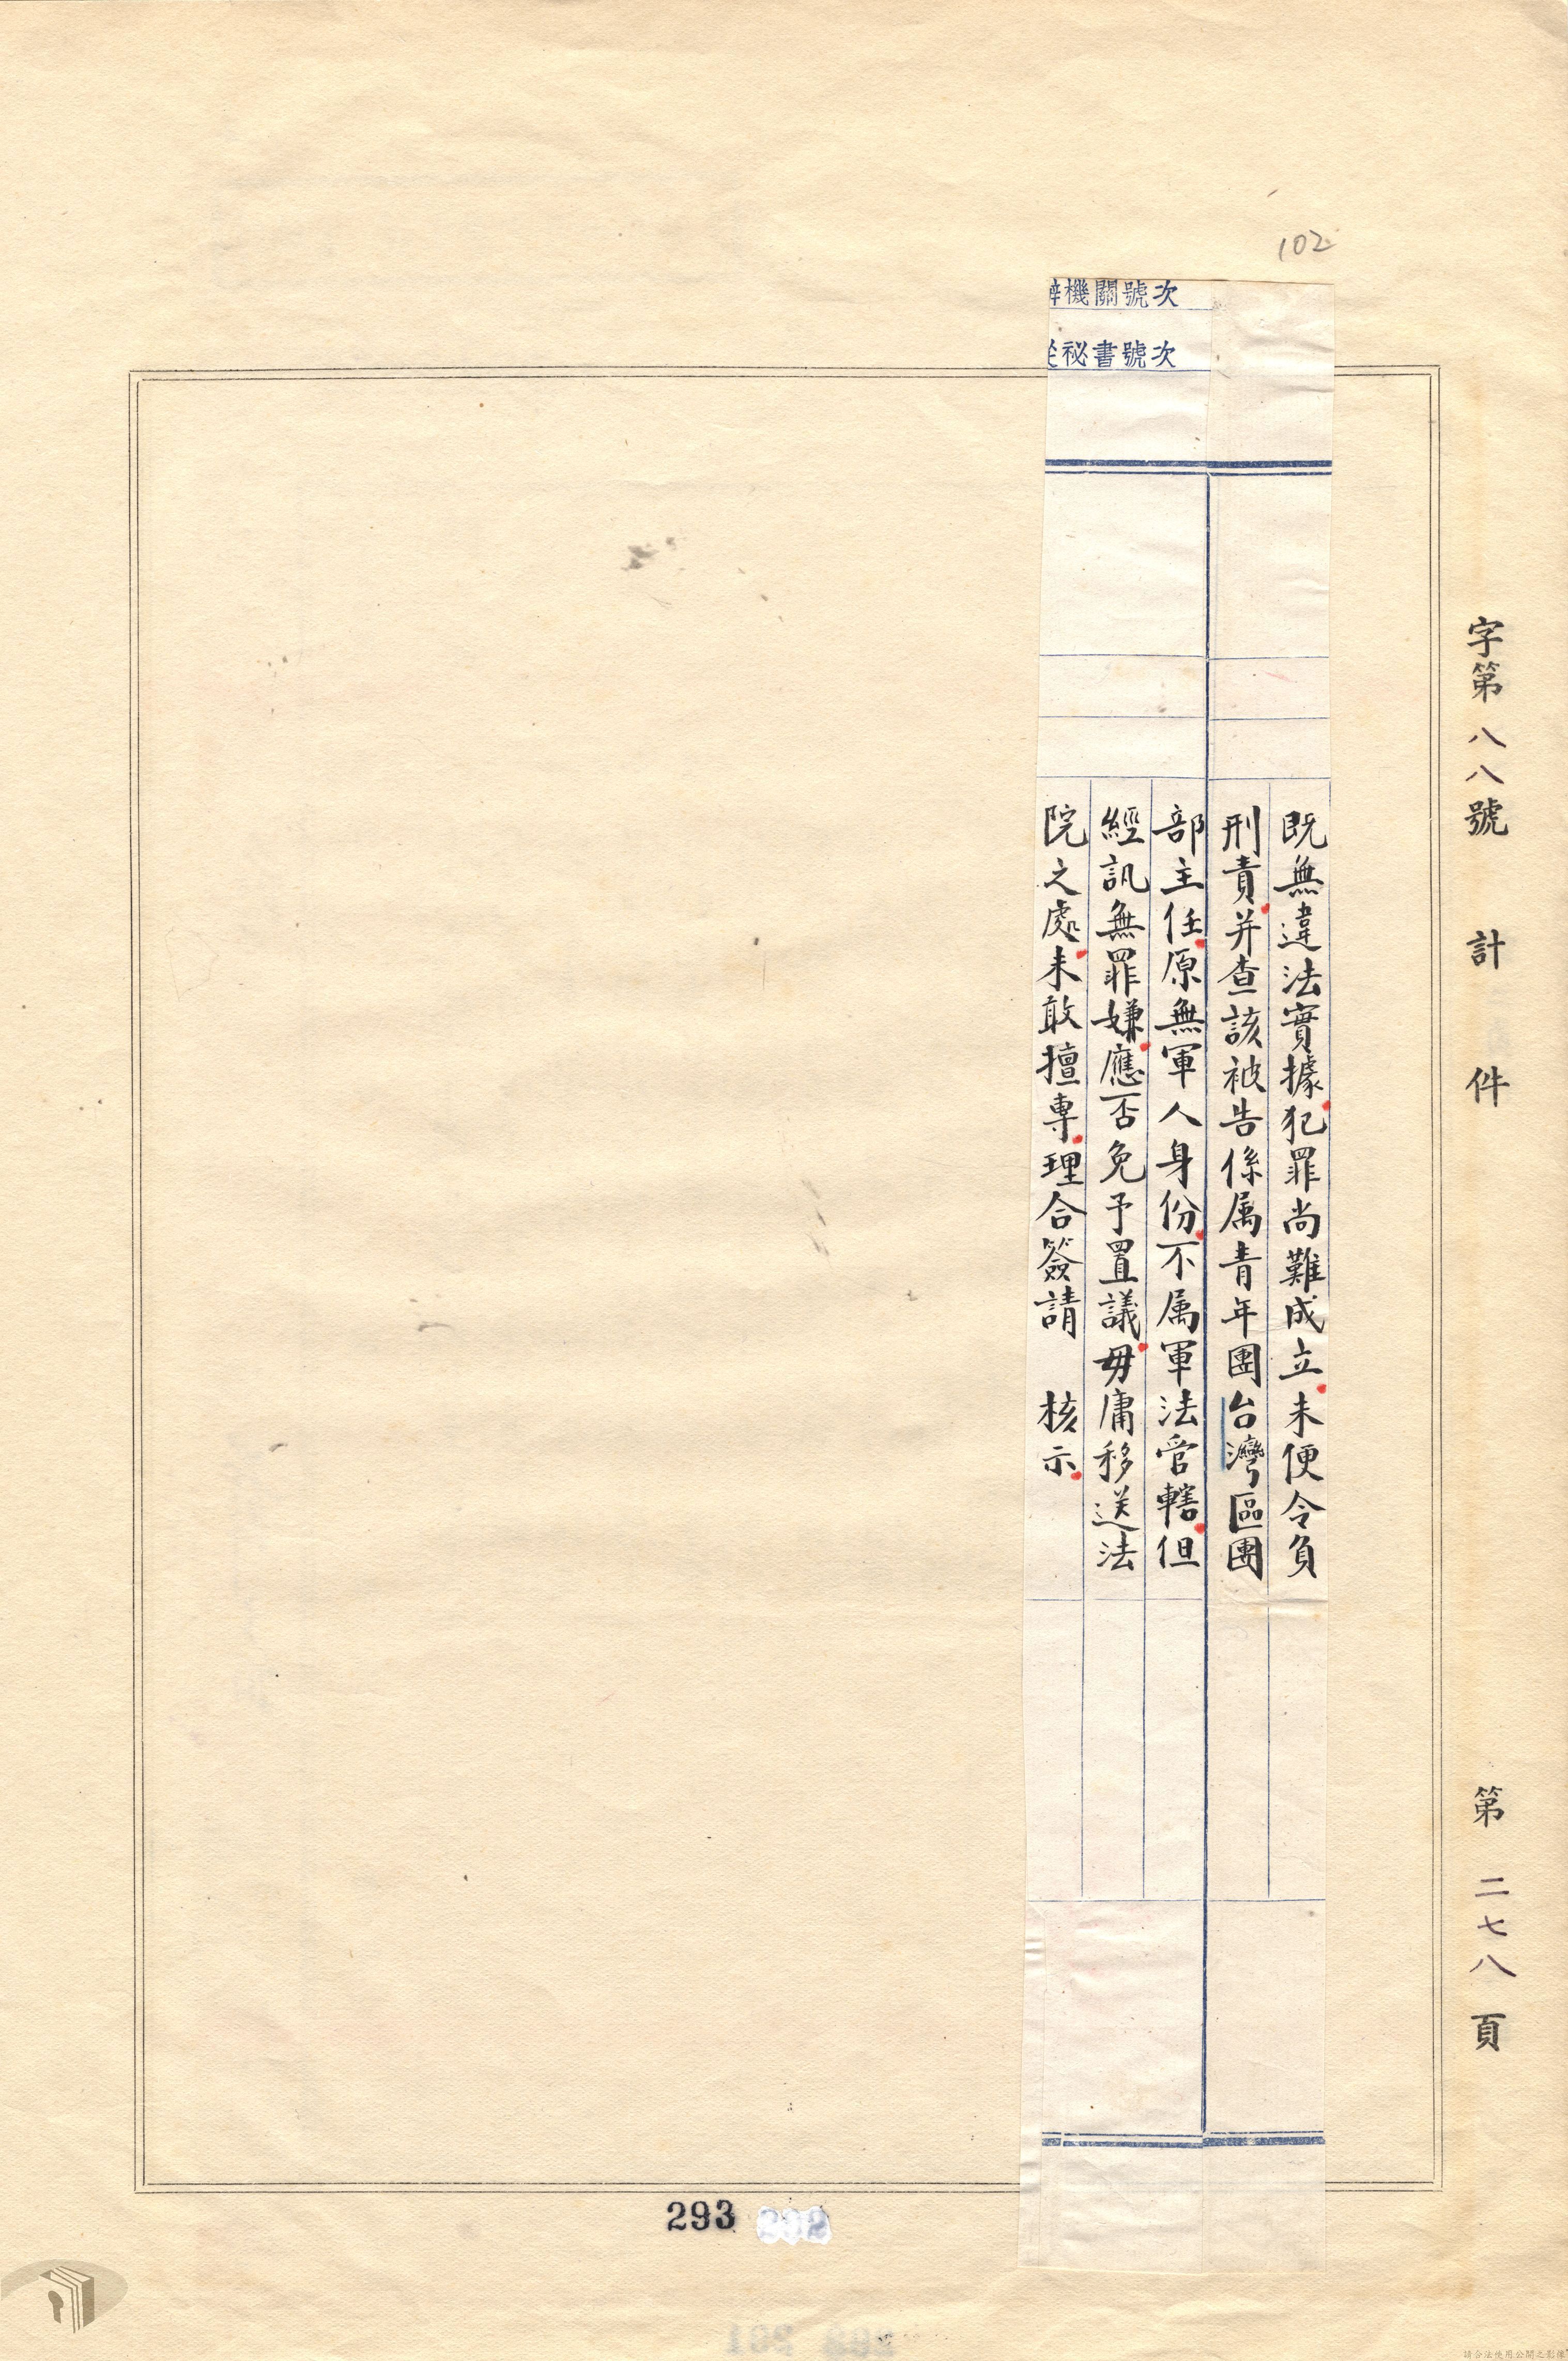 102
字第八八號 計 件 第二七八頁
機關號次
祕書號次
既無違法實據犯罪尚難成立未便令負
刑責并查該被告係属青年團台灣區團
部主任原無軍人身份不属軍法管轄但
經訊無罪嫌應否免予置議毋庸移送法
院之處未敢擅專理合簽請 核示
293
請合法使用公開之影像